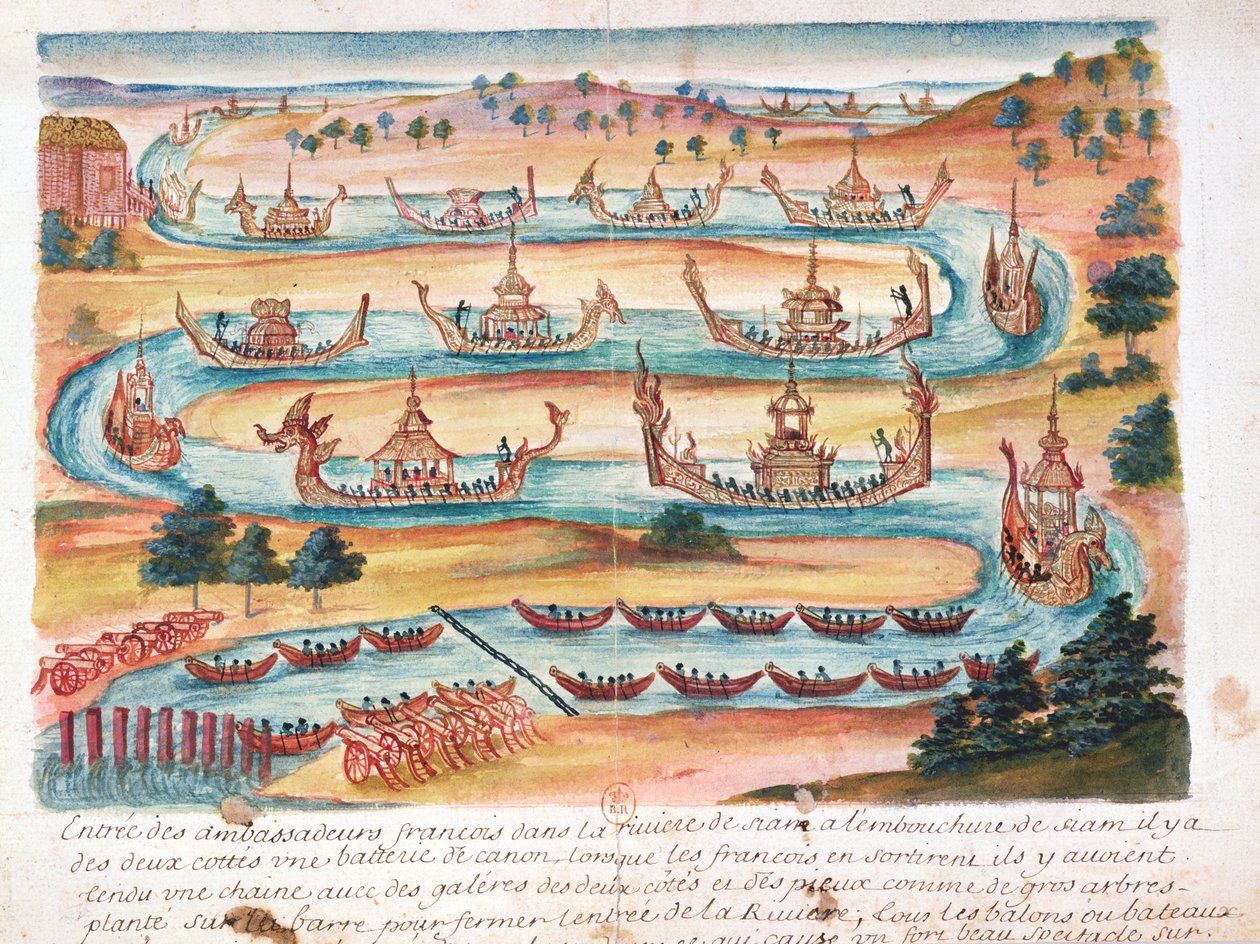 Entrée des ambassadeurs francois dans la riviere de siam a l'embouchure de siam il y a
des deux cottés vne batterie de canon, lorsque les francois en sortirent ils y avoient
tendu vne chaine avec des galéres des deux côtés et des pieux comme de gros arbres-
planté sur la barre pour fermer l'entrée de la Riviere, tous les balons ou bateaux
qui cause vn fort beau spectacle sur.
B.R